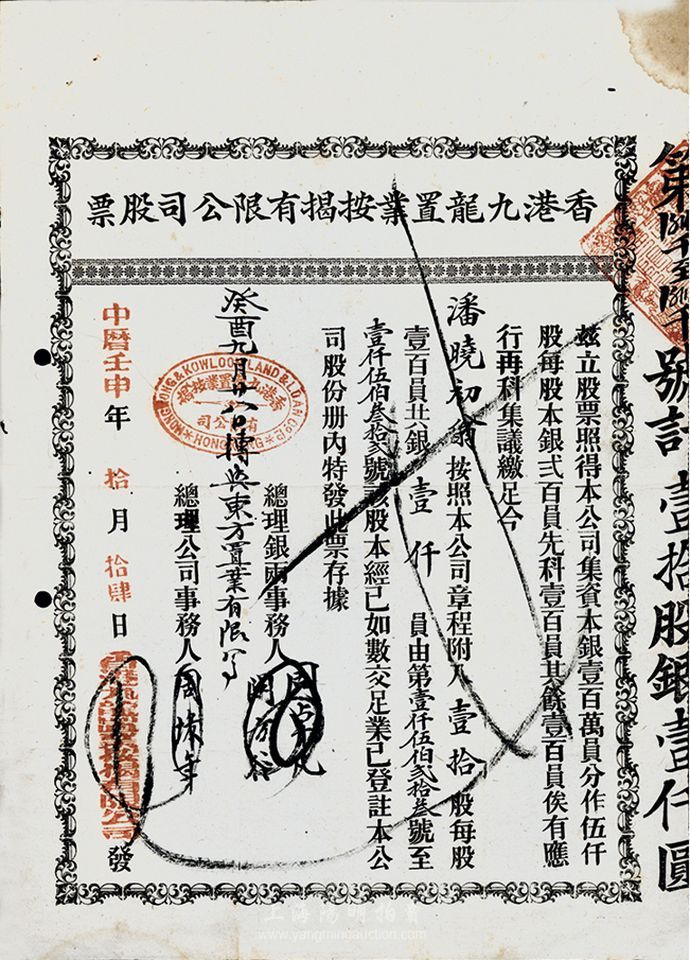 香港九龍置業按揭有限公司股票
號計壹拾股銀壹仟圓
茲立股票照得本公司集資本銀壹百萬員分作伍仟
股每股本銀弍百員先科壹百員其餘壹百員俟有應
行再科集議繳足今
潘曉初翁按照本公司章程附入壹拾股每股
壹百員共銀壹仟員由第壹仟伍佰弍拾叁號至
壹仟伍佰叁拾弍號該股本經已如數交足業已登註本公
司股份册內特發此票存據
總理銀兩事務人
總理公司事務人
癸酉九月廿八日轉與東方置業有限公司
HONG KONG & KOWLOON LAND & LOAN CO LD
香港九龍置業按揭
有限公司
HONG KONG
中曆壬申年拾月拾肆日香港九龍置業按揭有限公司發
上海陽明拍賣
www.yangmingauction.com